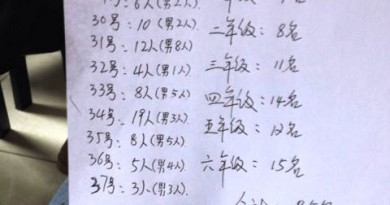 6人(男2人)
30号: 10(男2人) 二年级: 8名
31号: 12人(男8人)
32号: 4人(男1人) 三年级: 11名
33号: 8人(男5人)
四年级: 14名
34号: 19人(男3人)
五年级: 12名
35号: 8人(男5人)
36号: 5人(男4人) 六年级: 15名
37号: 3人(男3人)